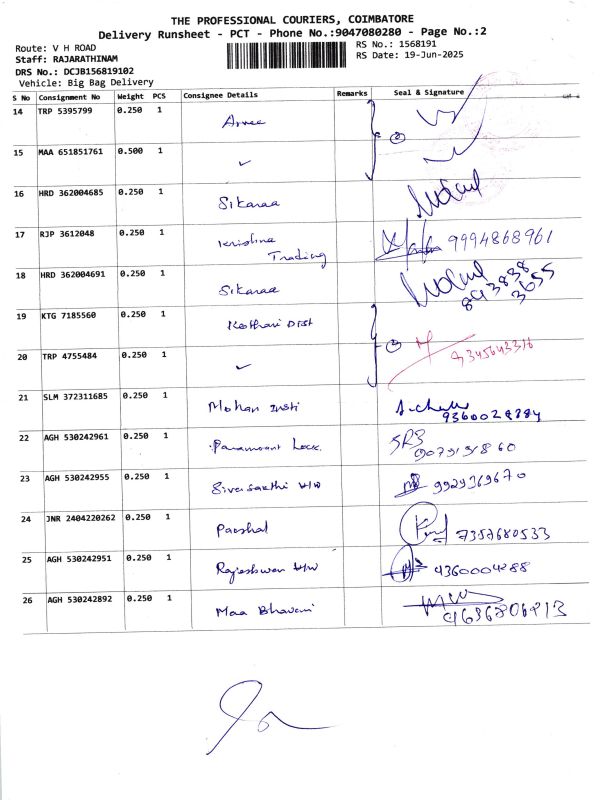 THE PROFESSIONAL COURIERS, COIMBATORE
Delivery Runsheet - PCT - Phone No.:9047080280 - Page No.:2
Route: V H ROAD
Staff: RAJARATHINAM
DRS No.: DCJB156819102
Vehicle: Big Bag Delivery
RS No.: 1568191
RS Date: 19-Jun-2025
S No Consignment No Weight PCS Consignee Details Remarks Seal & Signature
14 TRP 5395799 0.250 1
15 MAA 651851761 0.500 1 ✓
16 HRD 362004685 0.250 1 Sikaraa
17 RJP 3612048 0.250 1 Krishna Trading 9994868961
18 HRD 362004691 0.250 1 Sikaraa
19 KTG 7185560 0.250 1 Kothari Dist
20 TRP 4755484 0.250 1 ✓
21 SLM 372311685 0.250 1 Mohan Insti
22 AGH 530242961 0.250 1 Paramount Lock
23 AGH 530242955 0.250 1 Sivasakthi H/W 9929369670
24 JNR 2404220262 0.250 1 7357680533
25 AGH 530242951 0.250 1 Rajeshwari H/W
26 AGH 530242892 0.250 1 Maa Bhavani